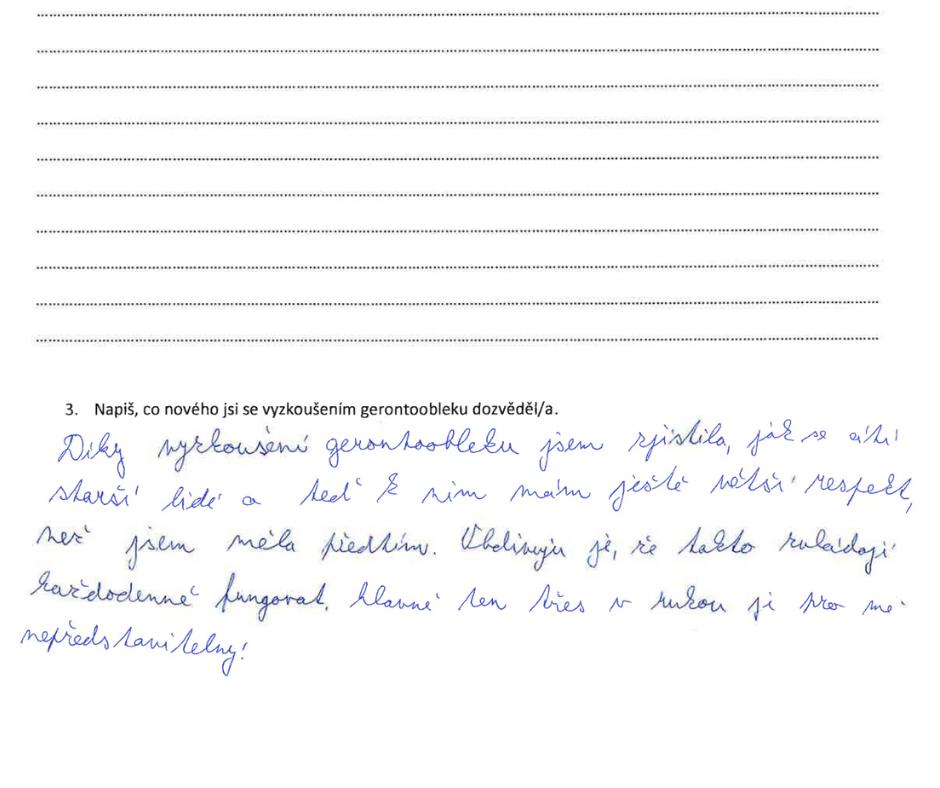 3. Napiš, co nového jsi se vyzkoušením gerontoobleku dozvěděl/a.
Díky vyzkoušení gerontoobleku jsem zjistila, jak se cítí
starší lidé a teď k nim mám ještě větší respekt,
než jsem měla předtím. Obdivuju je, že takto zvládají
každodenně fungovat, hlavně ten třes v rukou je pro mě
nepředstavitelný!